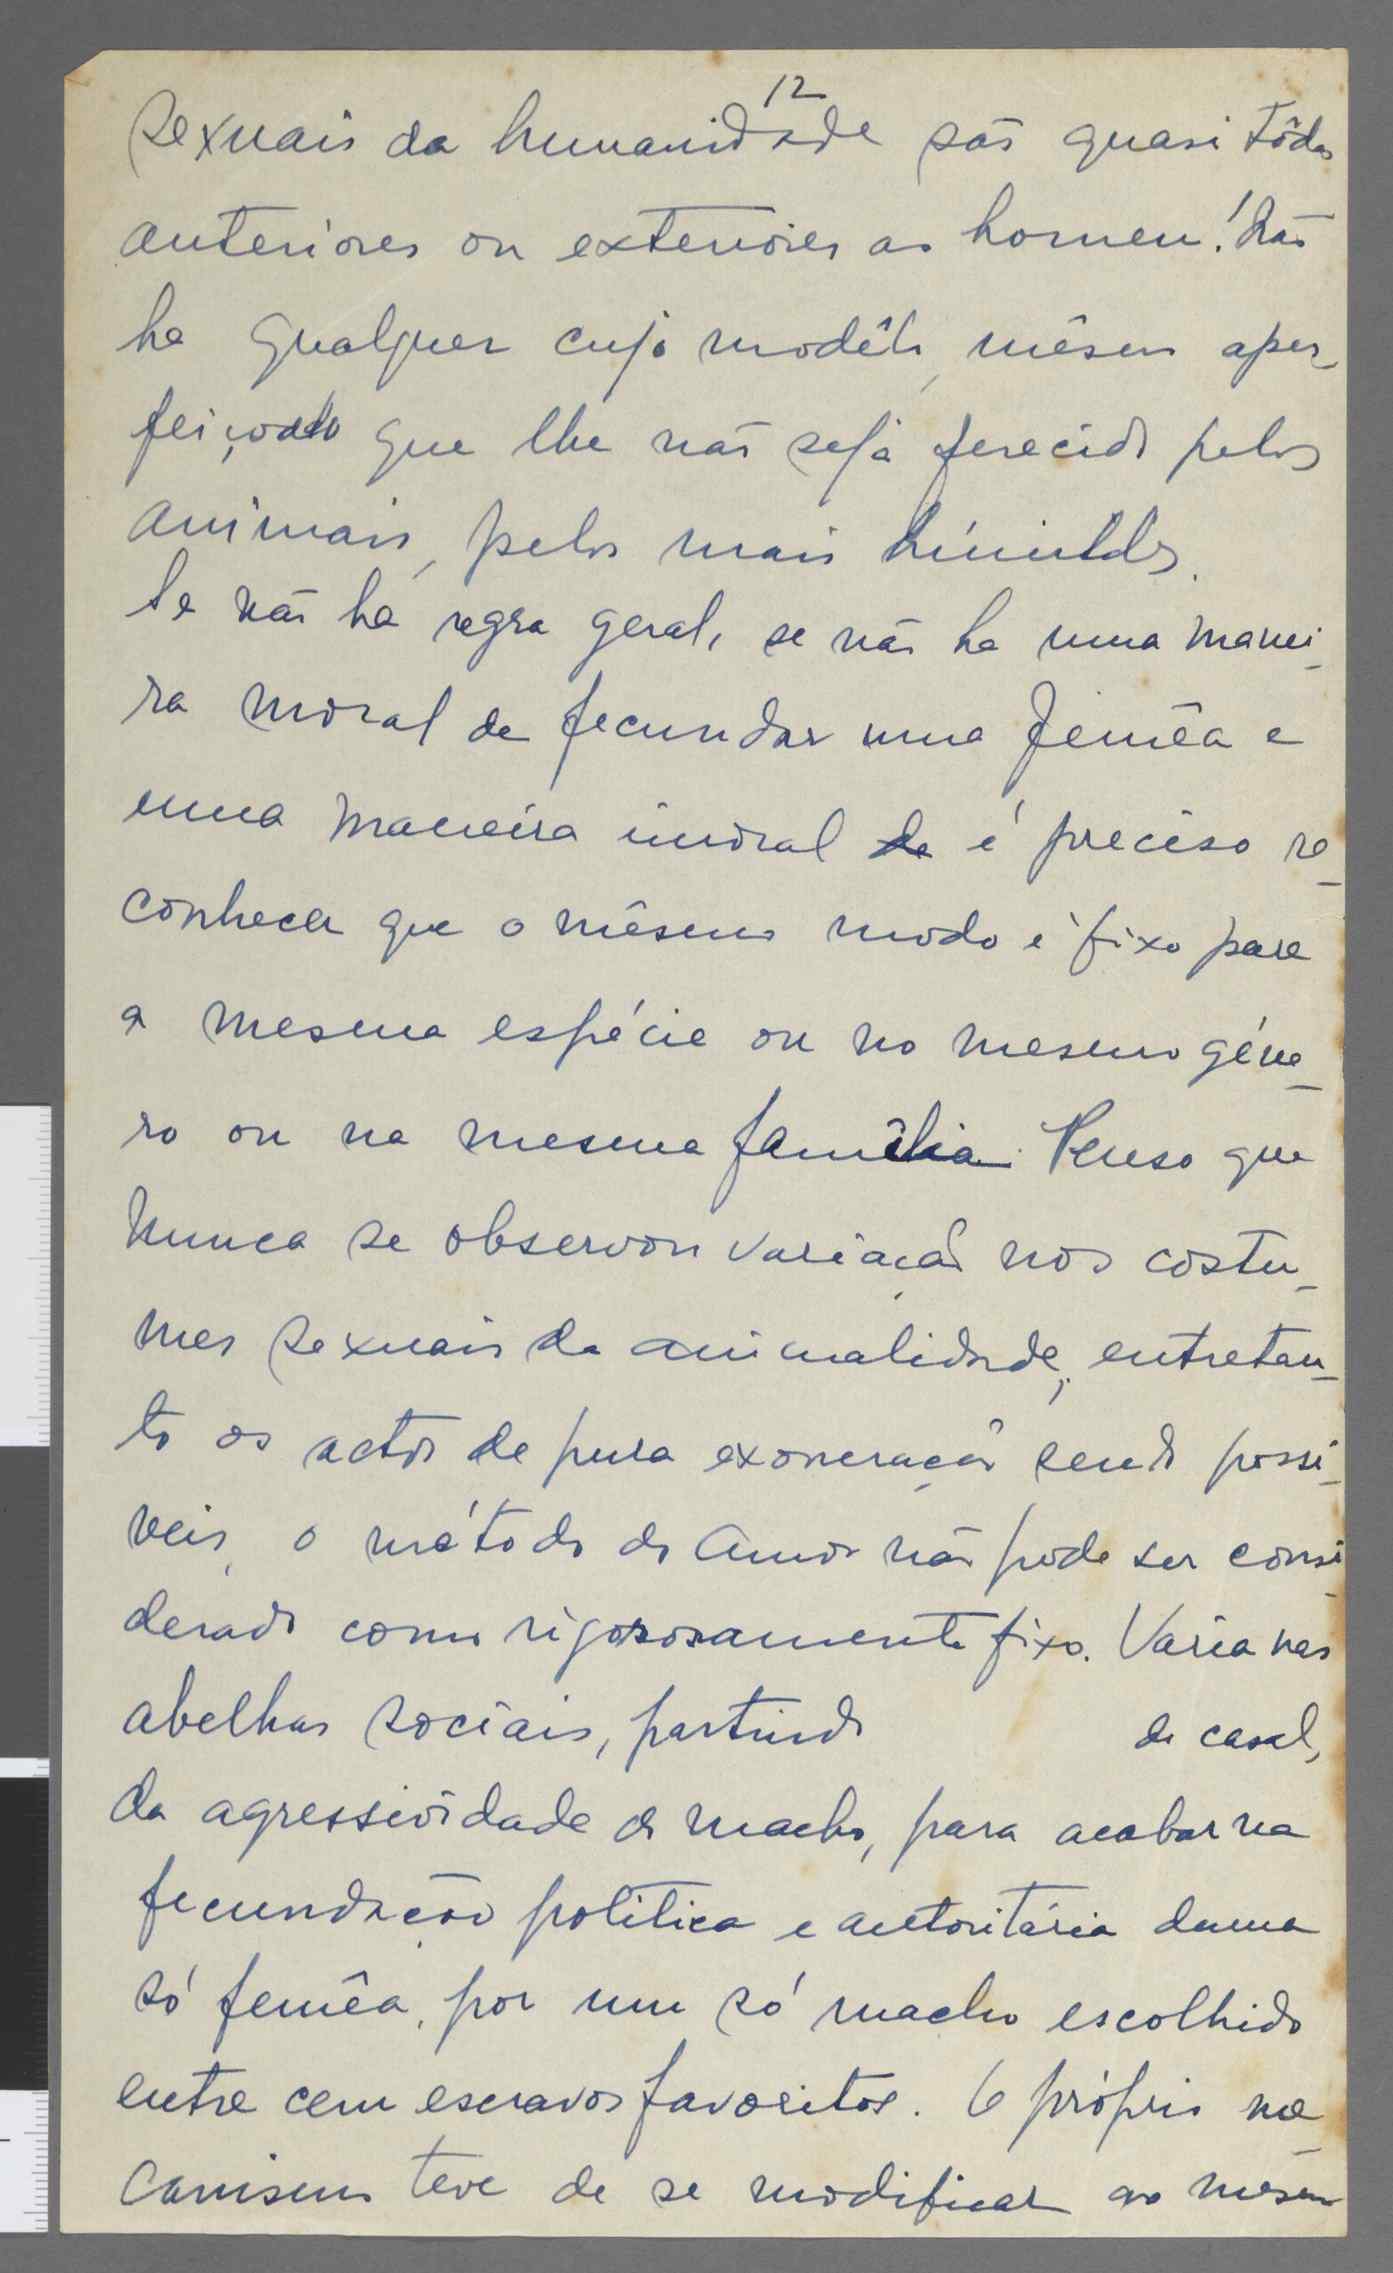 12
sexuais da humanidade são quasi tôdas
anteriores ou exteriores ao homem! Não
ha qualquer cujo modêlo, mêsmo aper-
feiçoado que lhe não seja ferecido pelos
animais, pelos mais húmildes.
Se não ha regra geral, se não ha uma manei-
ra moral de fecundar uma femêa e
uma maneira imoral de é preciso re-
conhecer que o mêsmo modo é fixo para
a mesma espécie ou no mesmo géne-
ro ou na mesma familia. Penso que
nunca se observou variação nos costu-
mes sexuais da animalidade; entretan-
to os actos de pura exoneração sendo possi-
veis, o método do amor não pode ser consi-
derado como rigorosamente fixo. Varia nas
abelhas sociais, partindo do casal,
da agressividade do macho, para acabar na
fecundação politica e autoritária duma
só femêa, por um só macho escolhido
entre cem escravos favoritos. O próprio me-
canismo teve de se modificar ao mêsmo